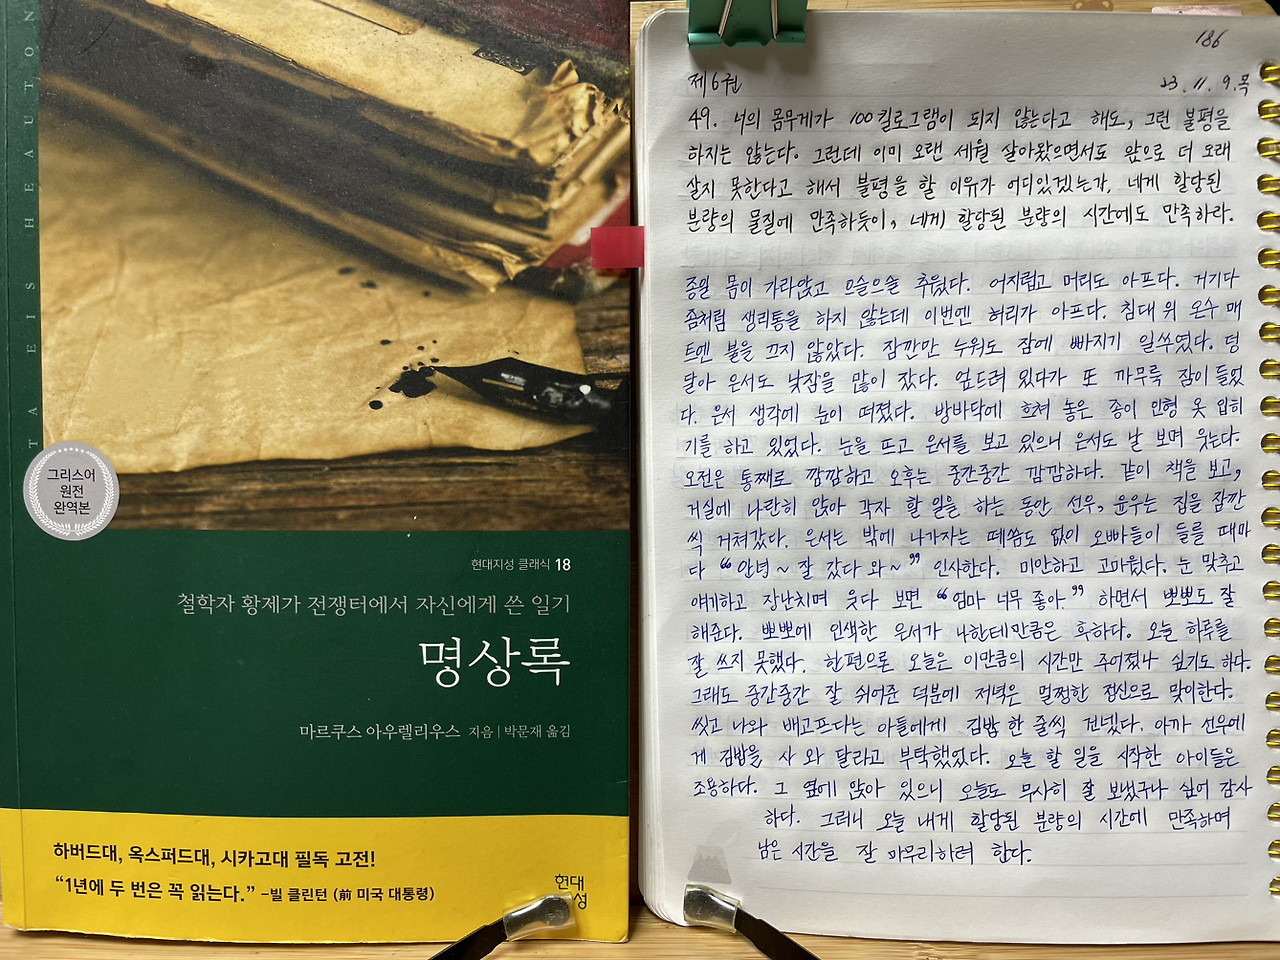 TA EIS HEAUTON
그리스어
원전
완역본
현대지성 클래식 18
철학자 황제가 전쟁터에서 자신에게 쓴 일기
명상록
마르쿠스 아우렐리우스 지음 | 박문재 옮김
하버드대, 옥스퍼드대, 시카고대 필독 고전!
“1년에 두 번은 꼭 읽는다.” –빌 클린턴 (前 미국 대통령)
현대
성
186
제6권 23. 11. 9. 목
49. 너의 몸무게가 100킬로그램이 되지 않는다고 해도, 그런 불평을
하지는 않는다. 그런데 이미 오랜 세월 살아왔으면서도 앞으로 더 오래
살지 못한다고 해서 불평을 할 이유가 어디있겠는가. 네게 할당된
분량의 물질에 만족하듯이, 네게 할당된 분량의 시간에도 만족하라.
종일 몸이 가라앉고 으슬으슬 추웠다. 어지럽고 머리도 아프다. 거기다
좀처럼 생리통을 하지 않는데 이번엔 허리가 아프다. 침대 위 온수 매
트엔 불을 끄지 않았다. 잠깐만 누워도 잠에 빠지기 일쑤였다. 덩
달아 은서도 낮잠을 많이 잤다. 엎드려 있다가 또 까무룩 잠이 들었
다. 은서 생각에 눈이 떠졌다. 방바닥에 흐쳐 놓은 종이 인형 옷 입히
기를 하고 있었다. 눈을 뜨고 은서를 보고 있으니 은서도 날 보며 웃는다.
오전은 통째로 깜깜하고 오후는 중간중간 깜깜하다. 같이 책을 보고,
거실에 나란히 앉아 각자 할 일을 하는 동안 선우, 윤우는 집을 잠깐
씩 거쳐갔다. 은서는 밖에 나가자는 떼씀도 없이 오빠들이 들를 때마
다 “안녕~ 잘 갔다 와~” 인사한다. 미안하고 고마웠다. 눈 맞추고
얘기하고 장난치며 웃다 보면 “엄마 너무 좋아.” 하면서 뽀뽀도 잘
해준다. 뽀뽀에 인색한 은서가 나한테만큼은 후하다. 오늘 하루를
잘 쓰지 못했다. 한편으론 오늘은 이만큼의 시간만 주어졌나 싶기도 하다.
그래도 중간중간 잘 쉬어준 덕분에 저녁은 멀쩡한 정신으로 맞이한다.
씻고 나와 배고프다는 아들에게 김밥 한 줄씩 건넸다. 아까 선우에
게 김밥을 사 와 달라고 부탁했었다. 오늘 할 일을 시작한 아이들은
조용하다. 그 옆에 앉아 있으니 오늘도 무사히 잘 보냈구나 싶어 감사
하다. 그러니 오늘 내게 할당된 분량의 시간에 만족하며
남은 시간을 잘 마무리하려 한다.